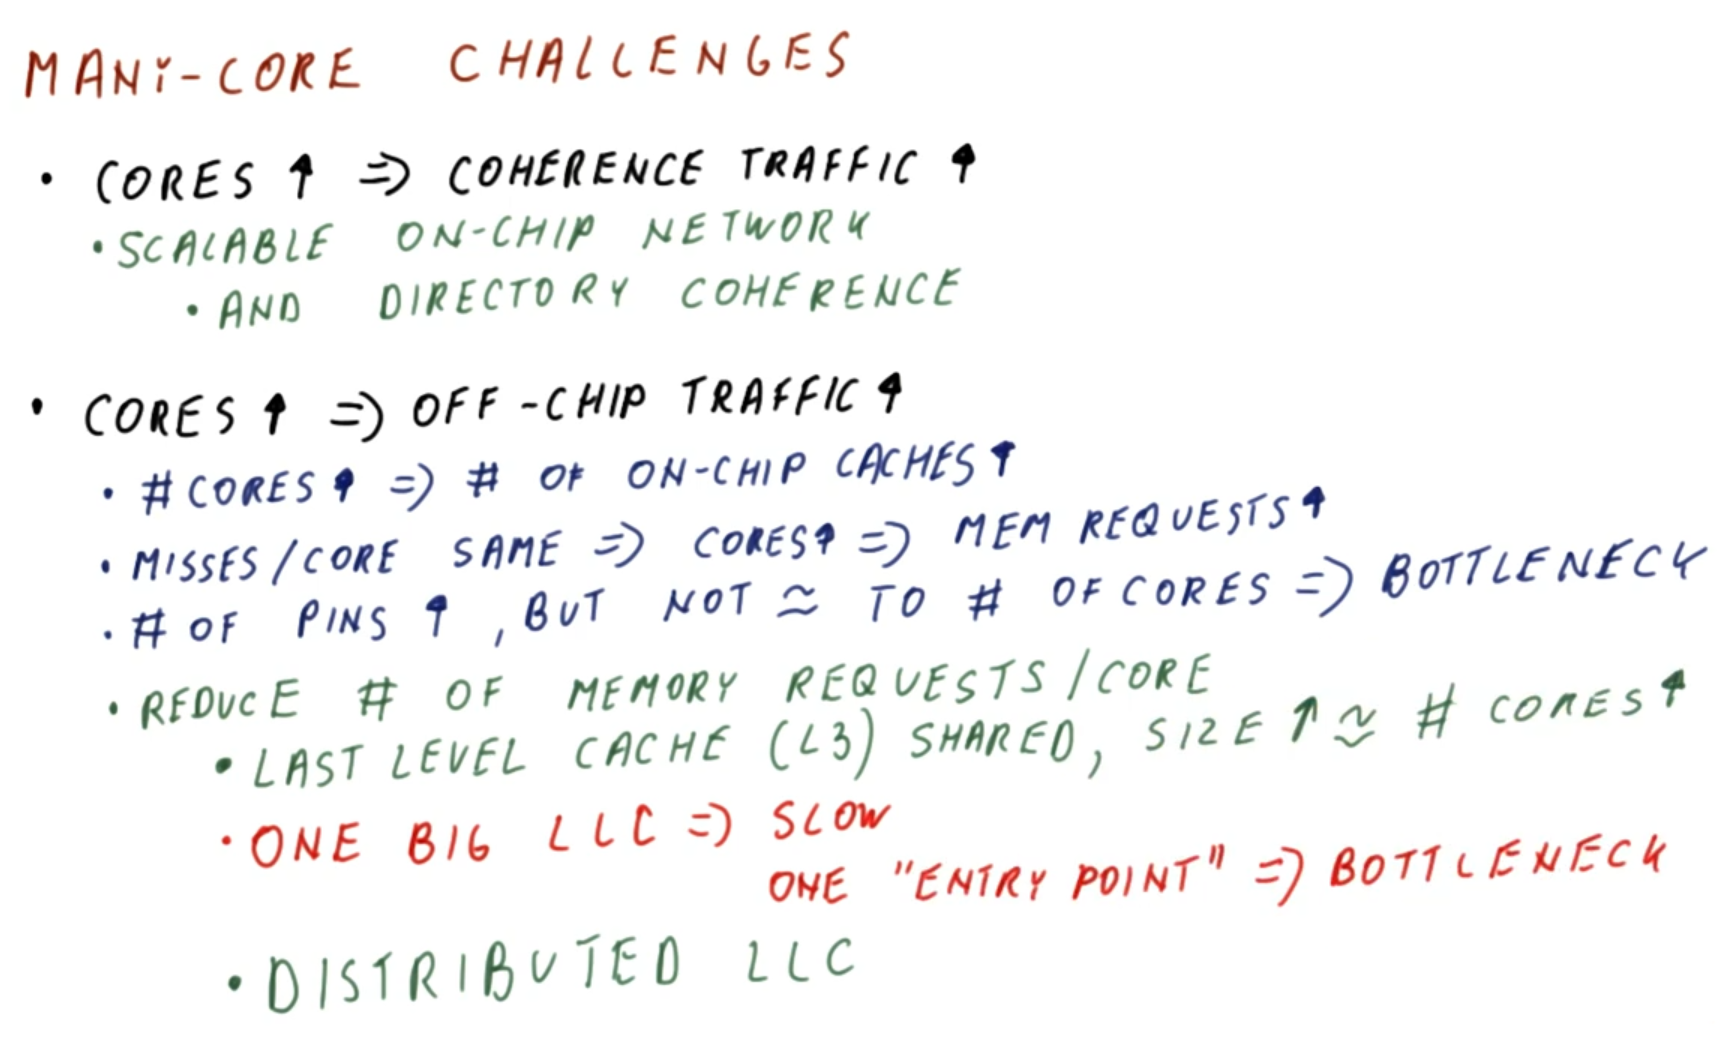 MANY-CORE CHALLENGES
• CORES ↑ => COHERENCE TRAFFIC ↑
• SCALABLE ON-CHIP NETWORK
• AND DIRECTORY COHERENCE
• CORES ↑ => OFF-CHIP TRAFFIC ↑
• # CORES ↑ => # OF ON-CHIP CACHES ↑
• MISSES/CORE SAME => CORES ↑ => MEM REQUESTS ↑
• # OF PINS ↑, BUT NOT ≈ TO # OF CORES => BOTTLENECK
• REDUCE # OF MEMORY REQUESTS/CORE
• LAST LEVEL CACHE (L3) SHARED, SIZE ↑ ≈ # CORES ↑
• ONE BIG LLC => SLOW
ONE "ENTRY POINT" => BOTTLENECK
• DISTRIBUTED LLC